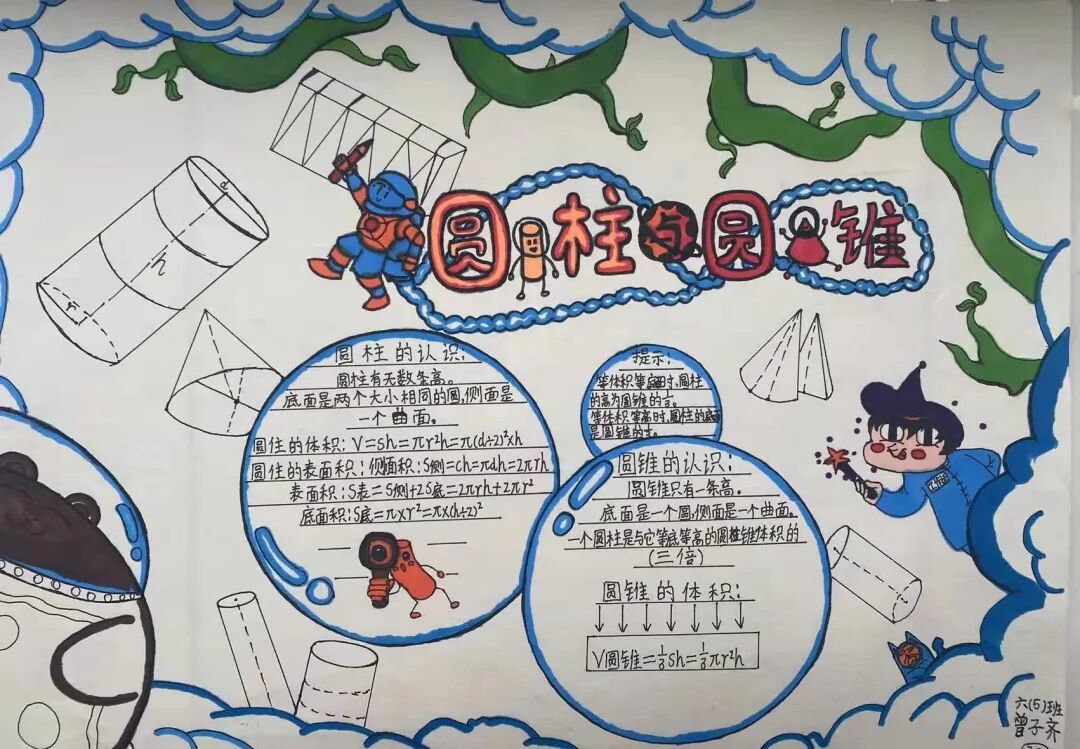 圆柱与圆锥
d
h
r
圆柱的认识:
圆柱有无数条高。
底面是两个大小相同的圆,侧面是
一个曲面。
圆住的体积:V=sh=πr²h=π(d÷2)²xh
圆住的表面积:侧面积:S侧=ch=πdh=2πrh
表面积:S表=S侧+2S底=2πrh+2πr²
底面积:S底=πxr²=πx(h÷2)²
提示:
等体积等底时,圆柱
的高为圆锥的⅓。
等体积等高时,圆住的底面
是圆锥的⅓。
圆锥的认识:
圆锥只有一条高。
底面是一个圆,侧面是一个曲面。
一个圆柱是与它等底等高的圆锥体积的
(三倍)
圆锥的体积:
V圆锥=⅓sh=⅓πr²h
六(5)班
曾子齐